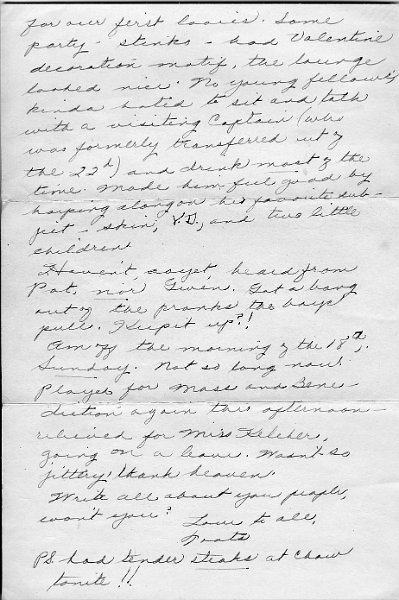 for our first looies. Some
party - steaks - had Valentine
decoration motif, the lounge
looked nice. No young fellows,
kinda hated to sit and talk
with a visiting Captain (who
was formerly transferred out of
the 22d) and drink most of the
time. Made him feel good by
harping along on his favorite sub-
ject - skin, V.D., and two little
children.
Haven't, as yet, heard from
Pat, nor Gwen. Got a bang
out of the pranks the boys
pull. Keep it up?!
Am off the morning of the 18th,
Sunday. Not so long now!
Played for Mass and Bene-
diction again this afternoon -
relieved for Miss Kelcher,
going on a leave. Wasn't so
jittery, thank heaven.
Write all about you people,
won't you?
Love to all,
P.S. had tender steaks at chow
tonite!!